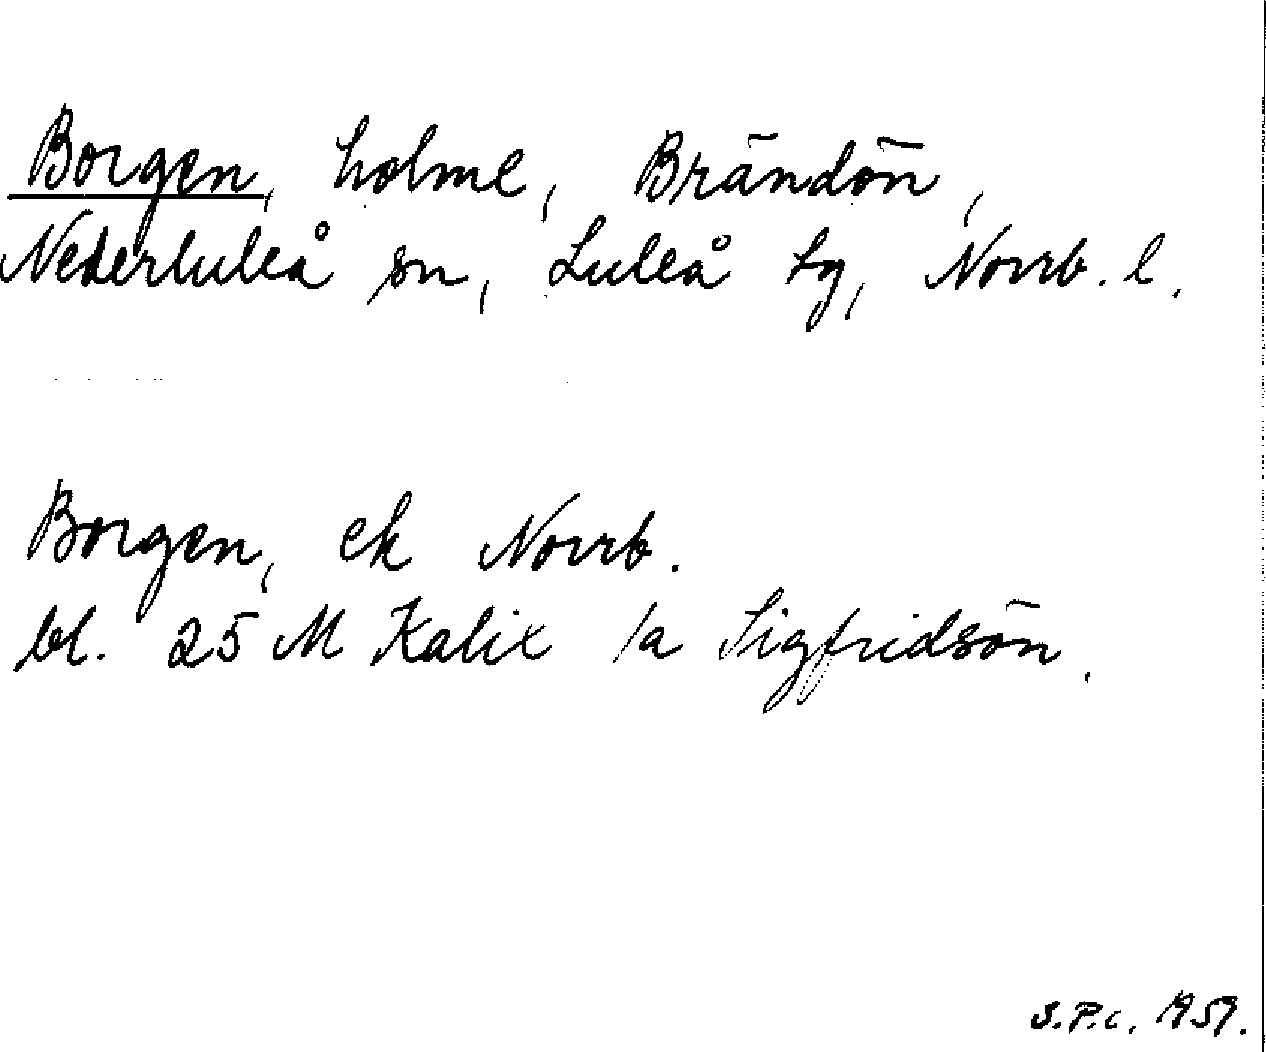 Borgen, holme, Brändön,
Nederluleå sn, Luleå tg, Norrb. l.
Borgen, ek Norrb.
bl. 25 M Kalix /a Sigfridsön.
S.P.C. 1959.